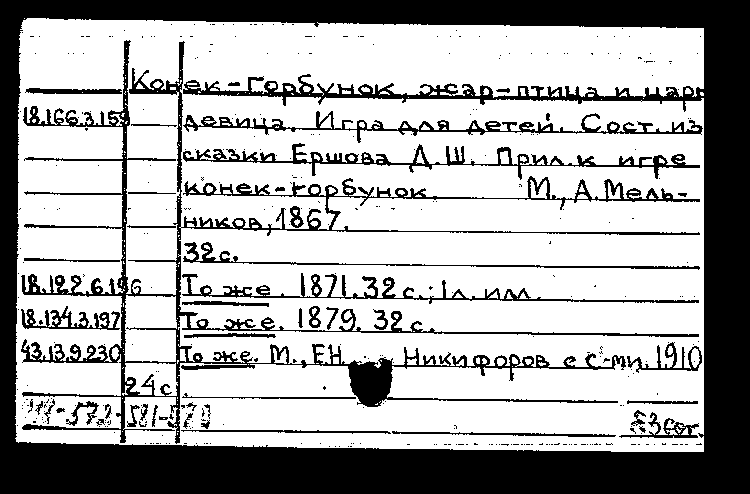 Конек-Горбунок, жар-птица и царь
18.166.3.159 девица. Игра для детей. Сост. из
сказки Ершова Д.Ш. Прил. к игре
конек-горбунок. М., А. Мель-
ников, 1867.
32 с.
18.122.6.196 То же. 1871. 32 с.; 1 л. илл.
18.134.3.197 То же. 1879. 32 с.
43.13.9.230 То же. М., Е.Н. Никифоров с с-ми. 1910
24 с.